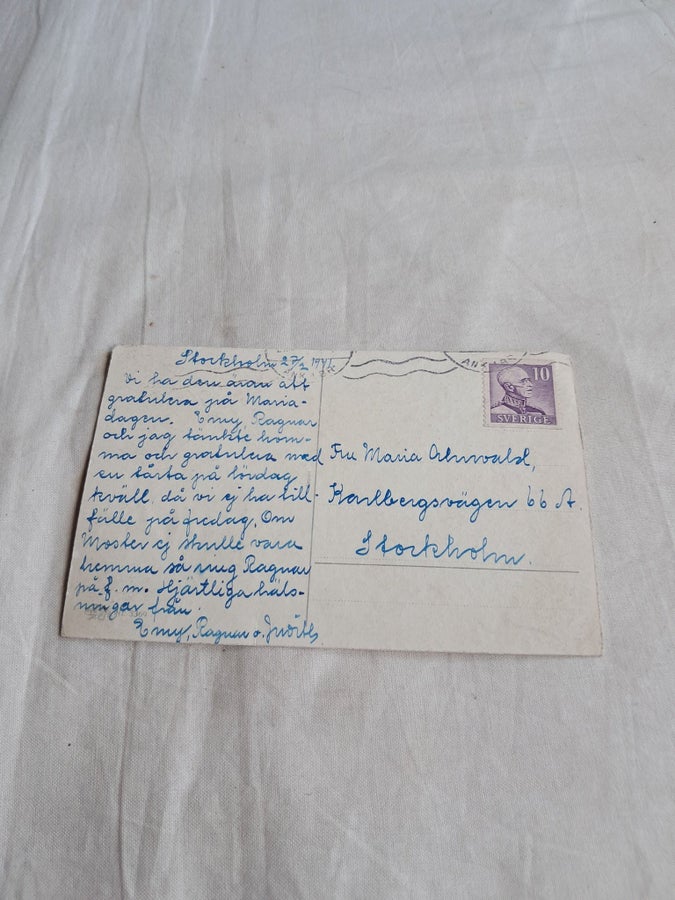 Stockholm 27/2 1941.
Vi ha den äran att
gratulera på Maria-
dagen. Emy, Ragnar
och jag tänkte kom-
ma och gratulera med
en tårta på lördag
kväll, då vi ej ha till-
fälle på fredag. Om
Moster ej skulle vara
hemma så ring Ragnar
på f. m. Hjärtliga häls-
ningar från
Emy, Ragnar o. Judith
10
SVERIGE
Fru Maria Ahnwald,
Karlbergsvägen 66 A.
Stockholm.